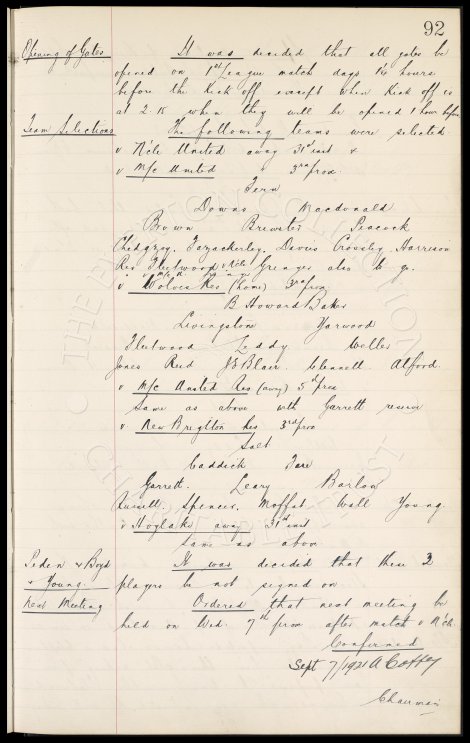 92
Opening of Gates It was decided that all gates be
opened on 1st League match days 1½ hours
before the Kick off except when Kick off is
at 2.15 when they will be opened 1 hour before
Team Selections The following teams were selected
v N'cle United away 31st inst &
v M/c United " 3rd prox.
Fern
Downs Macdonald
Brown Brewster Peacock
Chedgzoy, Fazackerley, Davies Crossley Harrison
Res Fleetwood v N'cle Grenyer also to go.
v Wolves Res (home) 3rd prox
B Howard Baker
Livingston Yarwood
Fleetwood Leddy Weller
Jones Reid J E Blair. Clennell. Alford.
v M/c United Res (away) 5th prox
Same as above with Garrett reserve
v New Brighton Res 3rd prox
Salt
Caddick Tare
Garrett. Leary Barlow
Spencer, Moffat Wall Young.
v Hoylake away 31st inst
Same as above
Peden & Boyd It was decided that these 3
& Young. players be not signed on
Next Meeting Ordered that next meeting be
held on Wed. 7th prox after match v N'cle.
Confirmed
Sept 7/1921 A Coffey
Chairman
THE EVERTON COLLECTION
CHARITABLE TRUST